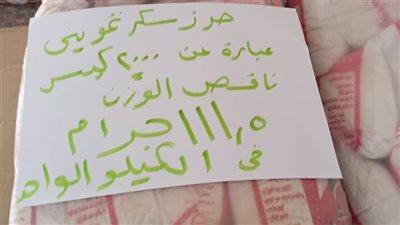 حرز سكر تمويني
عبارة عن ٢٠٠٠ كيس
ناقص الوزن
١١١٫٥ جرام
فى الكيلو الواحد